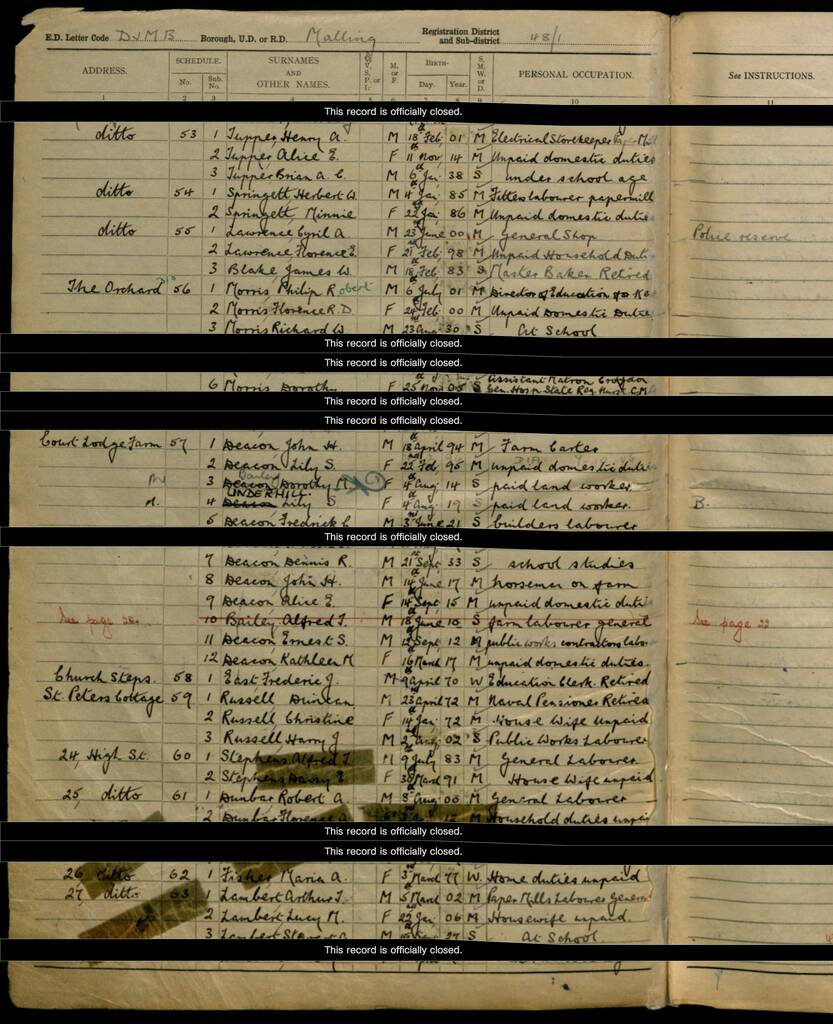 E.D. Letter Code DJMB Borough, U.D. or R.D. Malling Registration District and Sub-district 48/1
ADDRESS. SCHEDULE. No. Sub. No. SURNAMES AND OTHER NAMES. M. or F. BIRTH— Day. Year. S. M. W. or D. PERSONAL OCCUPATION. See INSTRUCTIONS.
1 2 3 4 5 6 7 8 9 10 11
This record is officially closed.
ditto 53 1 Tupper, Henry A. M 18th Feb 01 M Electrical Storekeeper
2 Tupper Alice E. F 11th Nov 14 M Unpaid domestic duties
3 Tupper Brian A. C. M 6th Jan 38 S under school age
ditto 54 1 Springett Herbert W. M 4th Jan 85 M Fitters labourer papermill
2 Springett Minnie F 22nd Jan 86 M Unpaid domestic dutie
ditto 55 1 Lawrence Cyril A. M 23rd June 00 M General Shop Police reserve
2 Lawrence, Florence E. F 21st Feb 98 M Unpaid Household Duti
3 Blake James W. M 18th Feb 83 S Master Baker Retired
The Orchard 56 1 Morris Philip Robert M 6th July 01 M Director of Education for Ke
2 Morris Florence R. D F 24th Feb 00 M Unpaid Domestic Dutie
3 Morris Richard W M 23rd Aug 30 S At School
This record is officially closed.
This record is officially closed.
6 Morris Dorothy F 25th Nov 05 S Assistant Matron Croydon Gen. Hosp State Reg. Nurse C.M.
This record is officially closed.
This record is officially closed.
Court Lodge Farm 57 1 Deacon John H. M 18th April 94 M Farm Carter
2 Deacon Lily S. F 22nd Feb 95 M unpaid domestic dutie
3 Deacon Bailey Dorothy M F 4th Aug 14 S paid land worker.
UNDERHILL.
4 Deacon Lily S F 4th Aug 19 S paid land worker. B.
5 Deacon Fredrick C M 3rd June 21 S builders labourer
This record is officially closed.
7 Deacon Dennis R. M 21st Sept 33 S school studies
8 Deacon John H. M 14th June 17 M horseman on farm
9 Deacon Alice E. F 14th Sept 15 M unpaid domestic duti
See page 22. 10 Bailey Alfred T. M 18th June 10 S farm labourer general See page 22
11 Deacon Ernest S. M 12th Sept 12 M public works contractors labo
12 Deacon Kathleen M F 16th March 17 M unpaid domestic duties.
Church Steps. 58 1 East Frederic J. M 9th April 70 W Education Clerk. Retired
St. Peters Cottage 59 1 Russell Duncan M 23rd April 72 M Naval Pensioner Retired
2 Russell Christine F 14th Jan 72 M House Wife Unpaid
3 Russell Harry J M 2nd Aug 02 S Public Works Labourer
24, High St. 60 1 Stephens Alfred T. M 9th July 83 M General Labourer
2 Stephens Daisy E. F 3rd March 91 M House Wife unpaid
25, ditto 61 1 Dunbar Robert A. M 8th Aug 00 M General Labourer
2 Dunbar Florence M Household duties unpai
This record is officially closed.
This record is officially closed.
26 ditto 62 1 Fisher Maria A. F 3rd March 77 W. Home duties unpaid
27 ditto 63 1 Lambert Arthur T. M 5th March 02 M Paper Mills Labourer General
2 Lambert Lucy M. F 22nd Jan 06 M Housewife unpaid.
3 Lambert M 27 S At School
This record is officially closed.